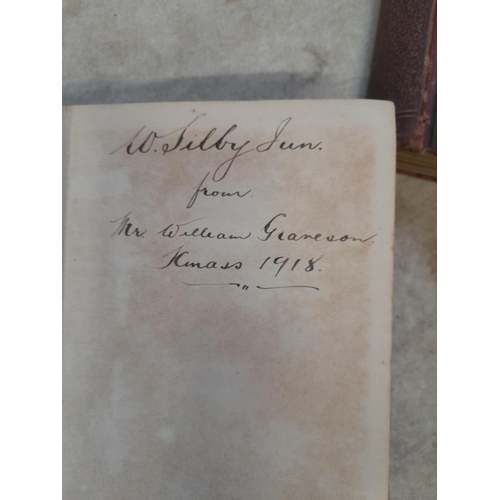 W. Silby Jun.
from
Mr. William Graveson
Xmass 1918.